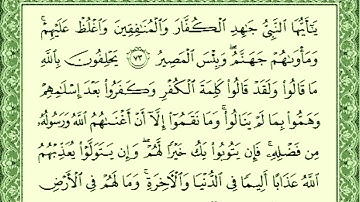 يَـٰٓأَيُّهَا ٱلنَّبِىُّ جَـٰهِدِ ٱلْكُفَّارَ وَٱلْمُنَـٰفِقِينَ وَٱغْلُظْ عَلَيْهِمْ ۚ
وَمَأْوَىٰهُمْ جَهَنَّمُ ۖ وَبِئْسَ ٱلْمَصِيرُ ٧٣ يَحْلِفُونَ بِٱللَّهِ
مَا قَالُوا۟ وَلَقَدْ قَالُوا۟ كَلِمَةَ ٱلْكُفْرِ وَكَفَرُوا۟ بَعْدَ إِسْلَـٰمِهِمْ
وَهَمُّوا۟ بِمَا لَمْ يَنَالُوا۟ ۚ وَمَا نَقَمُوٓا۟ إِلَّآ أَنْ أَغْنَىٰهُمُ ٱللَّهُ وَرَسُولُهُۥ
مِن فَضْلِهِۦ ۚ فَإِن يَتُوبُوا۟ يَكُ خَيْرًا لَّهُمْ ۖ وَإِن يَتَوَلَّوْا۟ يُعَذِّبْهُمُ
ٱللَّهُ عَذَابًا أَلِيمًا فِى ٱلدُّنْيَا وَٱلْـَٔاخِرَةِ ۚ وَمَا لَهُمْ فِى ٱلْأَرْضِ